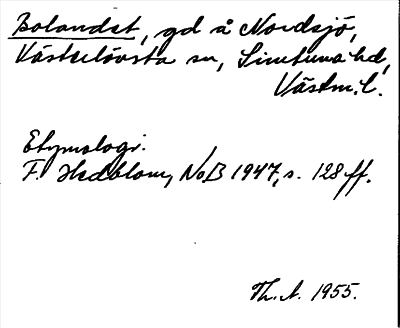 Bolandet, gd å Nordsjö,
Västerlövsta sn, Simtuna hd,
Västm. l.
Etymologi.
F. Hedblom, NoB 1947, s. 128 ff.
Th. A. 1955.